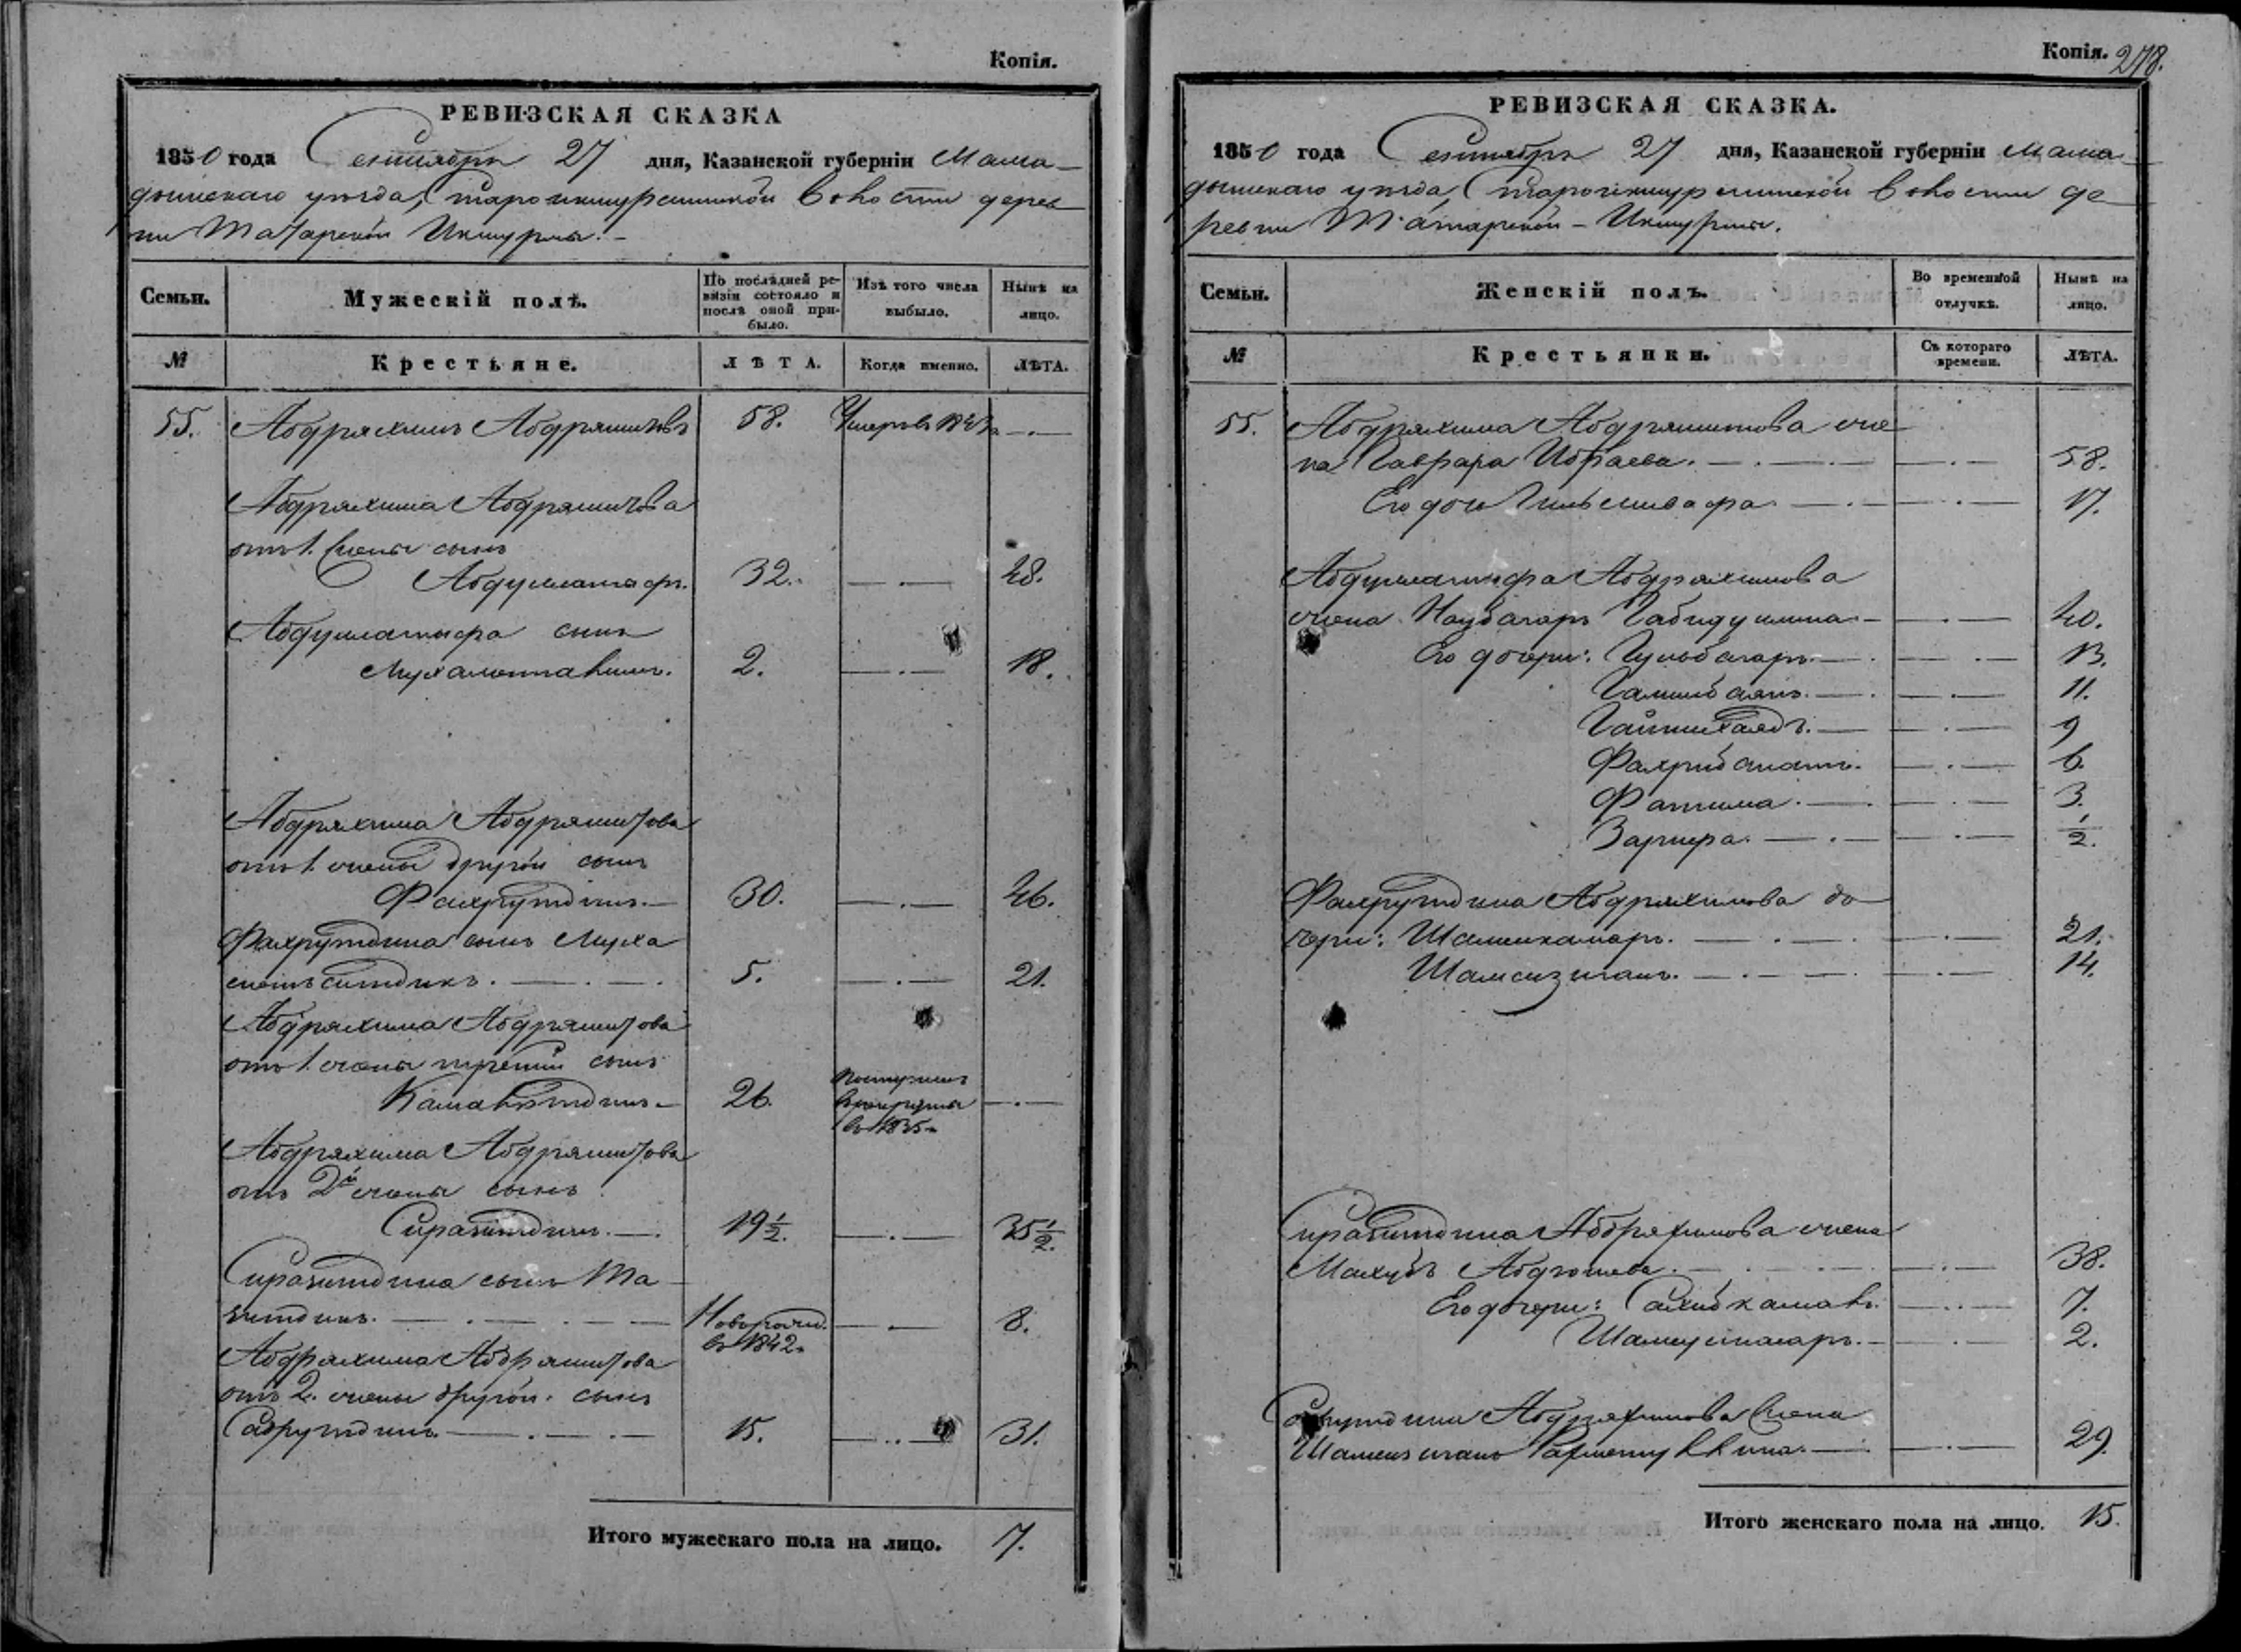 Копія.
РЕВИЗСКАЯ СКАЗКА
1850 года Сентября 27 дня, Казанской губерніи Мама-
дышскаго уѣзда, Староикшурминской волости дерев
ни Татарской Икшурмы. -
Семьи. Мужескій полъ. По послѣдней ре-визіи состояло и послѣ оной при-было. Изъ того числа выбыло. Нынѣ на лицо.
№ Крестьяне. ЛѢТА. Когда именно. ЛѢТА.
55. Абдряхимъ Абдряшитовъ 58. Умеръ в —.—
Абдряхима Абдряшитова
отъ 1. жены сынъ
Абдуллатифъ. 32. —.— 48.
Абдуллатифа сынъ
2. —.— 18.
Абдряхима Абдряшитова
отъ 1. жены другой сынъ
Фахрутдинъ.— 30. —.— 46.
Фахрутдина сынъ Муха
метъситдикъ. —.—. 5. —.— 21.
Абдряхима Абдряшитова
отъ 1. жены третій сынъ
Камалетдинъ— 26. поступилъ в рекруты в 1835 —.—
Абдряхима Абдряшитова
отъ 2й жены сынъ
Сиразитдинъ.—. 19 1/2. —.— 35 1/2.
Сиразитдина сынъ Та-
зитдинъ. —.—.— Новорожд. в 1842. —.— 8.
Абдряхима Абдряшитова
отъ 2. жены другой. сынъ
Садрутдинъ.—.—.— 15. —..— 31.
Итого мужескаго пола на лицо. 7.
Копія. 278.
РЕВИЗСКАЯ СКАЗКА.
1850 года Сентября 27 дня, Казанской губерніи Мама-
дышскаго уѣзда, Староикшурминской волости де-
ревни Татарской - Икшурмы.
Семьи. Женскій полъ. Во временной отлучкѣ. Нынѣ на лицо.
№ Крестьянки. Съ котораго времени. ЛѢТА.
55. Абдряхима Абдряшитова же-
на Ибраева. —.—.— —.— 58.
Его дочь —.— —.— 17.
Абдуллатифа Абдряхимова
жена Наубагаръ Габидуллина.- —.— 40.
Его дочери: Гульбагаръ.—. —.— 13.
Галлибаянъ.—. —.— 11.
—.— 9
—.— 6.
Фатима.—. —.— 3.
—.— —.— 1/2.
Фахрутдина Абдряхимова до-
чери: Шамсикамаръ. —.—. —.— 21.
Шамсизиганъ.—.—. —.— 14.
Сиразитдина Абдряхимова жена
Махубъ —..— 38.
Его дочери: Сахибкамалъ. —..— 7.
—..— 2.
Садрутдина Абдряхимова жена
—..— 29.
Итого женскаго пола на лицо. 15.